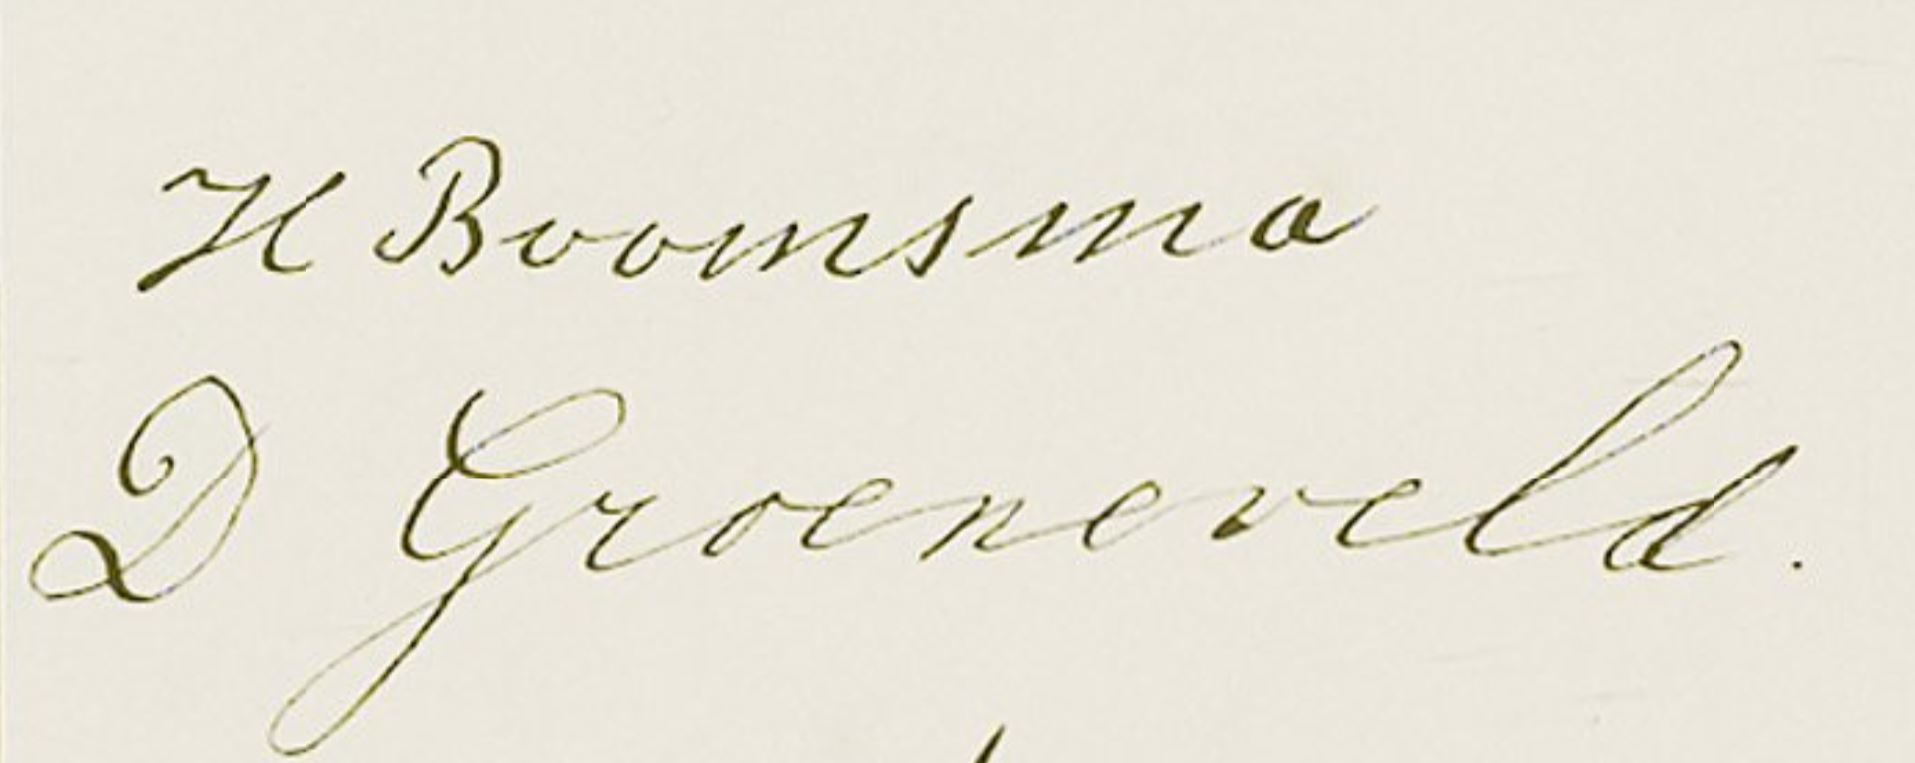 H Boomsma
D Groeneveld.